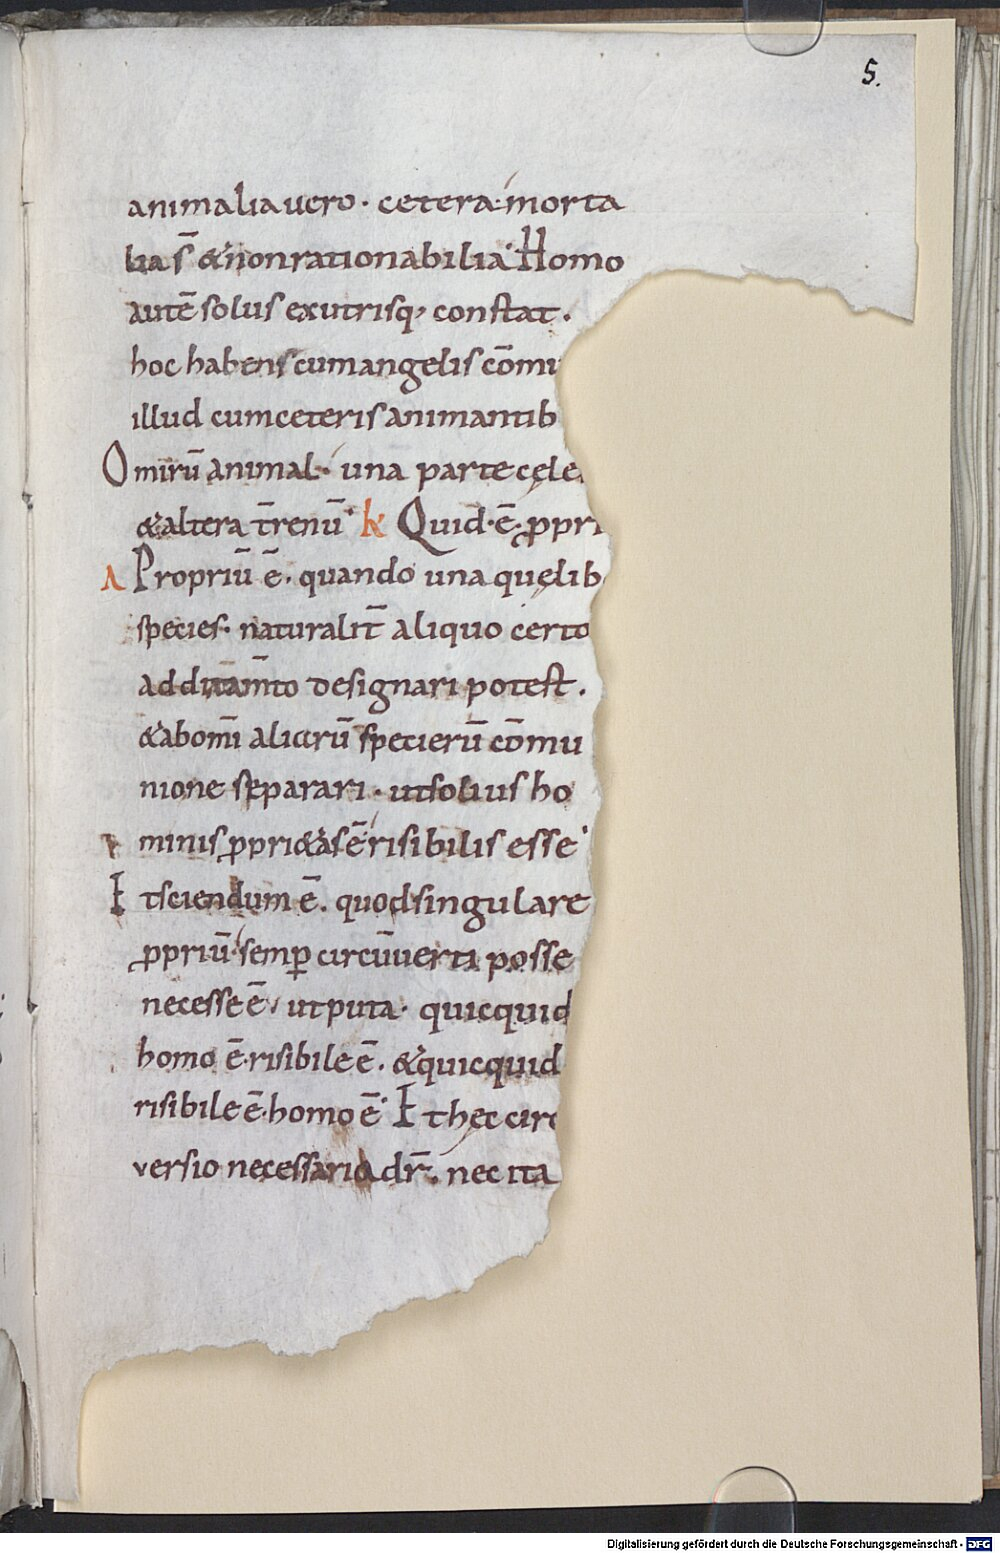 5.
animalia uero · cetera morta
lia s̄ & non rationabilia· Homo
autē solus ex utrisq; constat .
hoc habens cum angelis cōmu
illud cum ceteris animantib
O mirū animal · una parte cęle
& altera t̄renū· K Quid · ē · ꝓpri
Λ Propriū ē . quando una quęlib
species · naturalit̄ aliquo certo
additam̄to designari potest .
& ab om̄i aliarū specierū cōmu
nione separari · ut solius ho
minis ꝓpriętas ē risibilis esse·
Et sciendum ē . quod singulare
ꝓpriū semꝑ circūuerti posse
necesse ē , ut puta · quicquid
homo ē · risibile ē . & quicquid
risibile ē · homo ē· Et hęc circ
versio necessaria dr̄ . nec ita
Digitalisierung gefördert durch die Deutsche Forschungsgemeinschaft - DFG